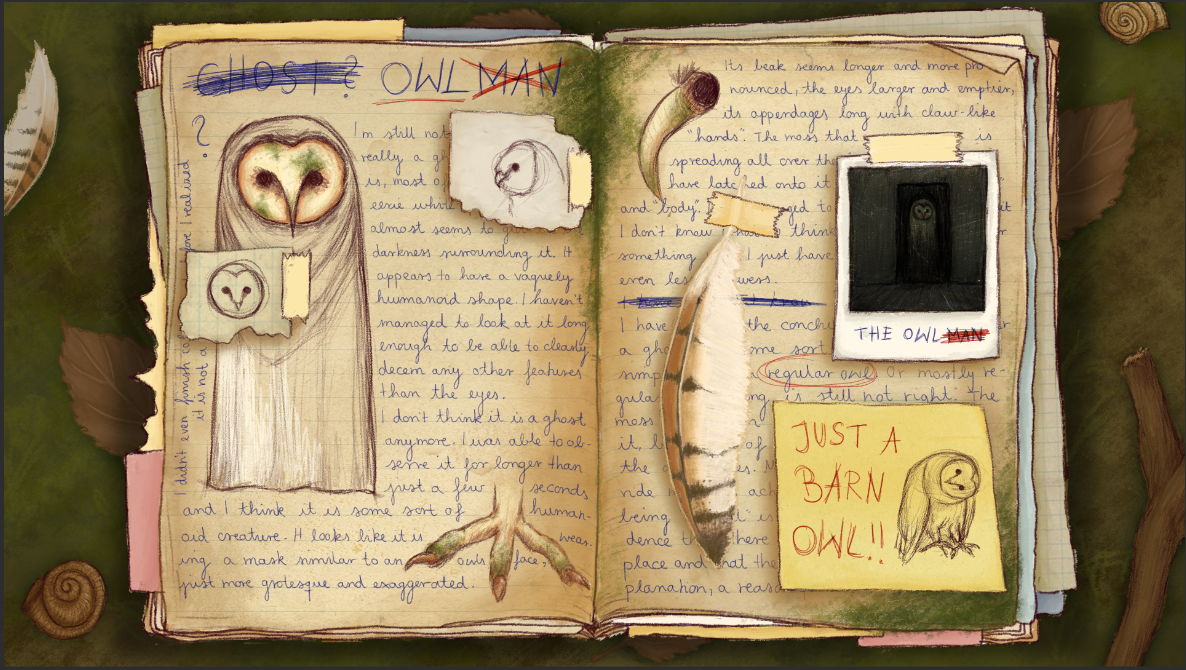 GHOST ? OWL MAN
?
I'm still not
really a gh
is, most
eerie whit
almost seems to g
darkness surrounding it. It
appears to have a vaguely
humanoid shape. I haven't
managed to look at it long
enough to be able to clearly
decern any other features
than the eyes.
I don't think it is a ghost
anymore. I was able to ob-
serve it for longer than
just a few seconds
and I think it is some sort of human-
oid creature. It looks like it is wear-
ing a mask similar to an owls face,
just more grotesque and exaggerated.
I didn't even finish
I realized
it is not a
Its beak seems longer and more pro
nounced, the eyes larger and emptier,
its appendages long with claw-like
"hands". The moss that is
spreading all over the
have latched onto it
and "body". ged to it
I don't know thin
something I just have
even les wers.
I have the conclu
a gho me sort
simp regular owl. Or mostly re-
gula ng is still not right. The
moss
it, of
the es.
being is
dence here
place and that the
planation, a reas
THE OWL MAN
JUST A
BARN
OWL!!